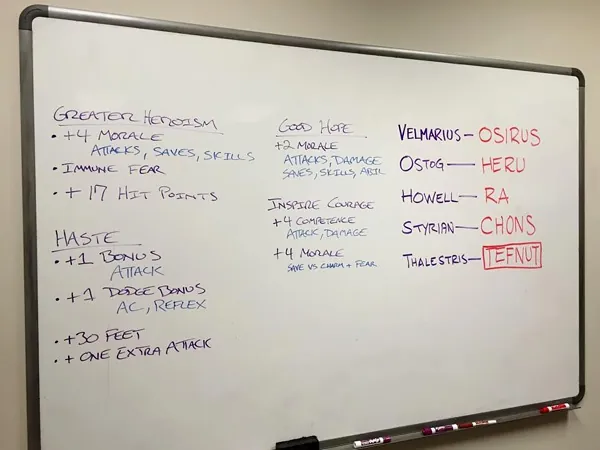 GREATER HEROISM
• +4 MORALE
ATTACKS, SAVES, SKILLS
• IMMUNE FEAR
• +17 HIT POINTS
HASTE
• +1 BONUS
ATTACK
• +1 DODGE BONUS
AC, REFLEX
• +30 FEET
• + ONE EXTRA ATTACK
GOOD HOPE
+2 MORALE
ATTACKS, DAMAGE
SAVES, SKILLS, ABIL
INSPIRE COURAGE
+4 COMPETENCE
ATTACK, DAMAGE
+4 MORALE
SAVE VS CHARM + FEAR
VELMARIUS — OSIRUS
OSTOG — HERU
HOWELL — RA
STYRIAN — CHONS
THALESTRIS — TEFNUT